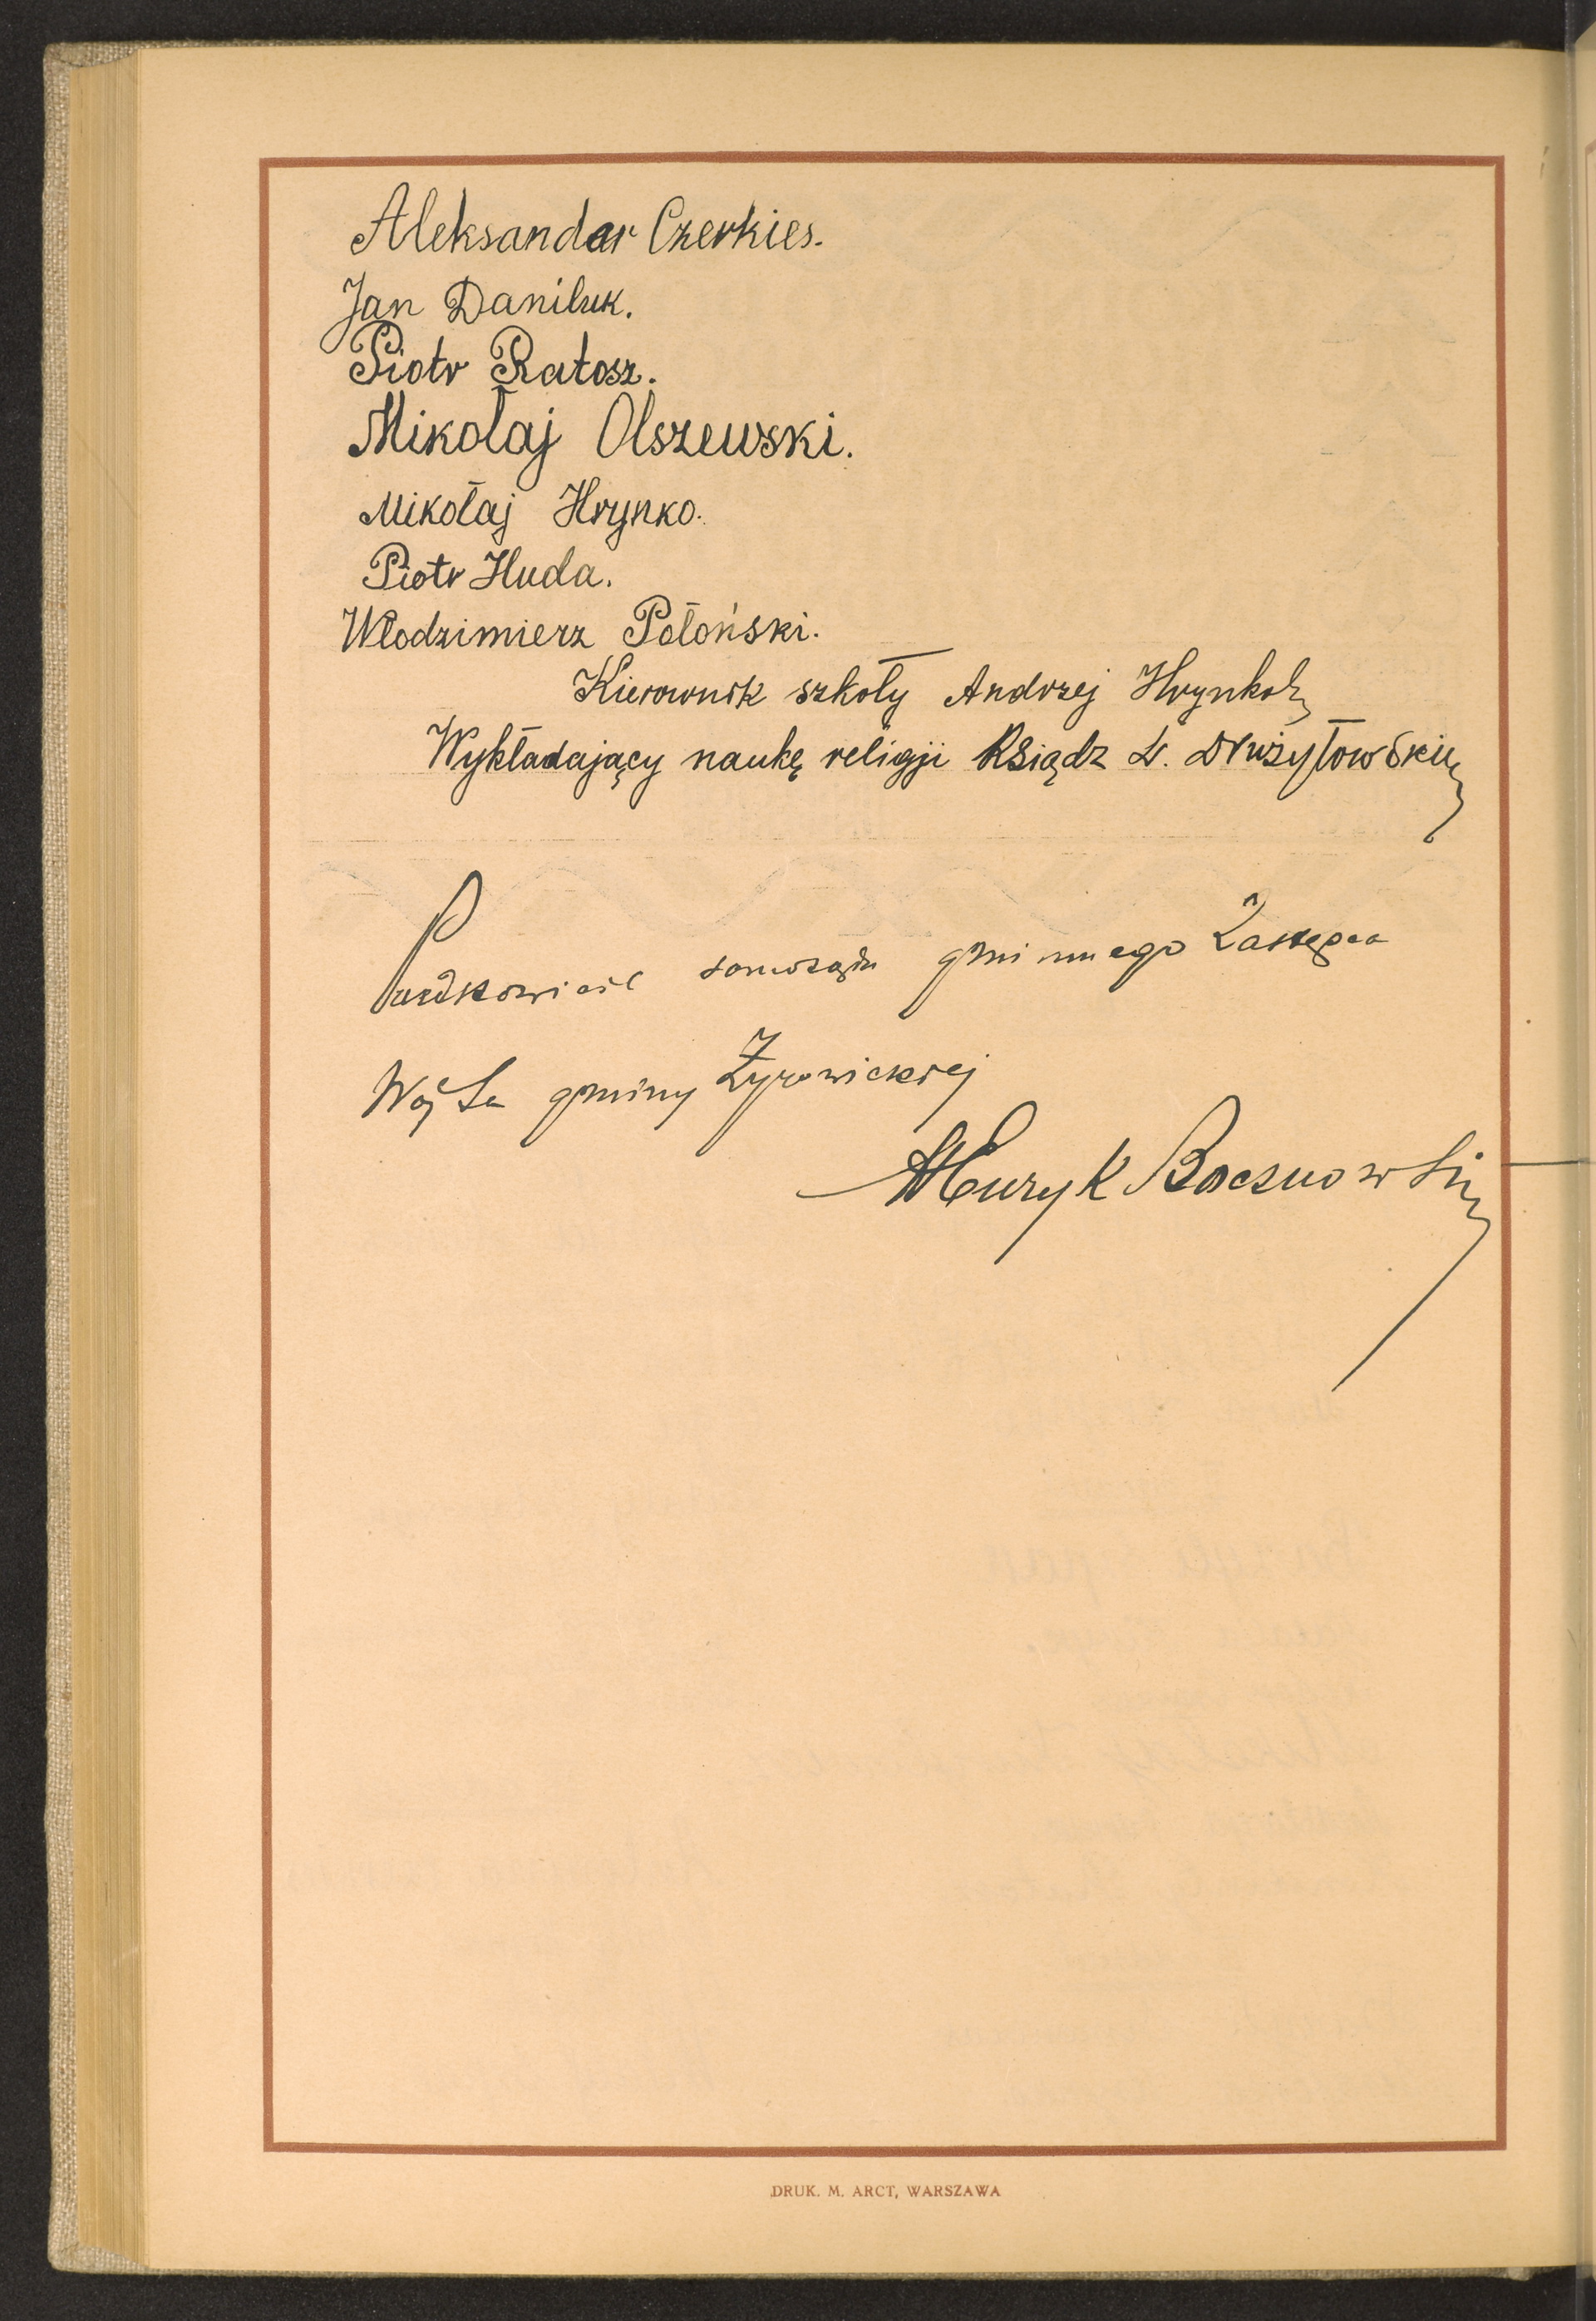 Aleksandar Czerkies.
Jan Daniluk.
Piotr Ratosz.
Mikołaj Olszewski.
Mikołaj Hrynko.
Piotr Huda.
Włodzimierz Połoński.
Kierownik szkoły Andrzej Hrynkol
Wykładający naukę religji Ksiądz D. Drużyłowski
samorządu gminnego Zastępca
Wójta gminy Żyrowickiej
Henryk
DRUK. M. ARCT, WARSZAWA